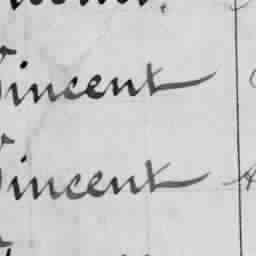 Vincent
Vincent